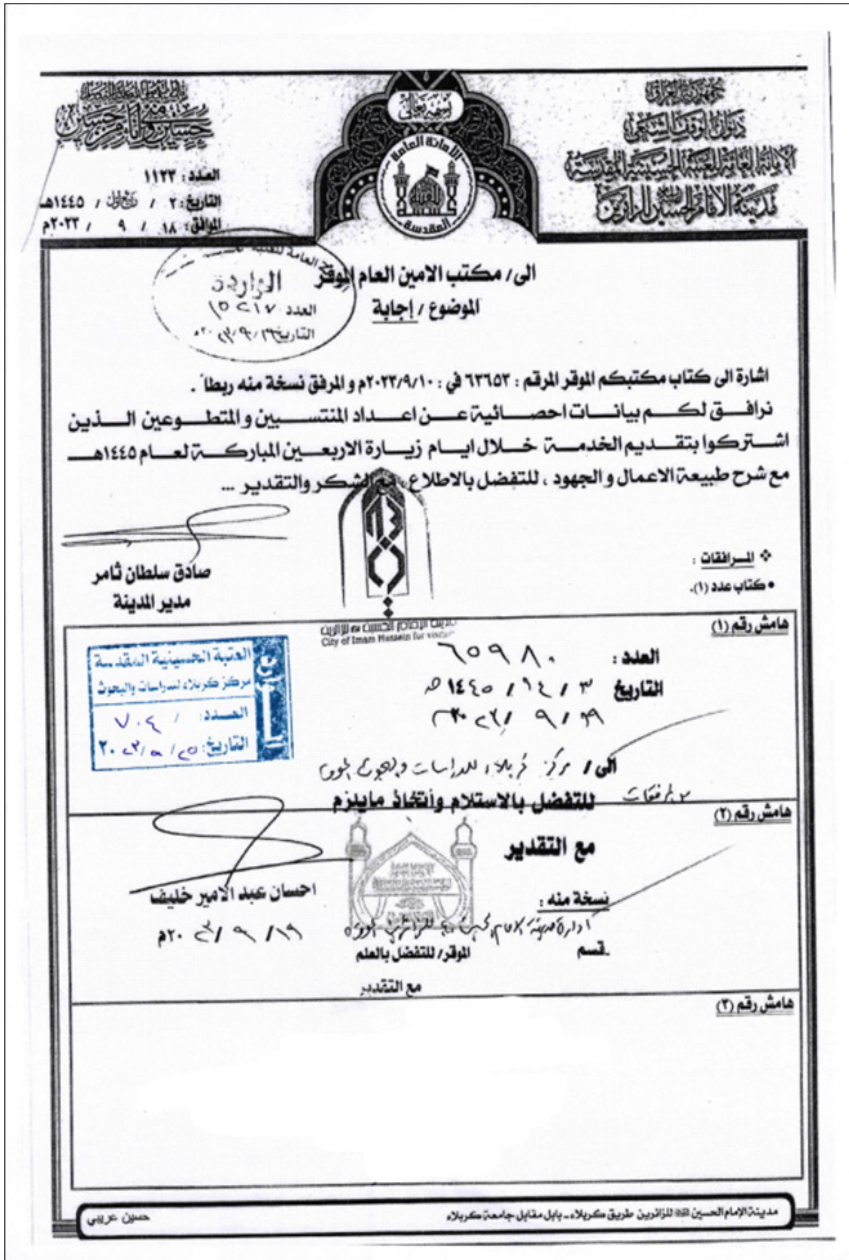 جمهورية العراق
ديوان الوقف الشيعي
الامانة العامة للعتبة الحسينية المقدسة
مدينة الامام الحسين للزائرين
الأمانة العامة
المقدسة
العدد : ١١٢٣
التاريخ : ٢ / ربيع اول / ١٤٤٥هـ
الموافق : ١٨ / ٩ / ٢٠٢٣م
الواردة
العدد ١٥٢١٧
الى/ مكتب الامين العام الموقر
الموضوع / إجابة
اشارة الى كتاب مكتبكم الموقر المرقم : ٦٣٦٥٣ في : ٢٠٢٣/٩/١٠م و المرفق نسخة منه ربطاً .
نرافق لكم بيانات احصائية عن اعداد المنتسبين و المتطوعين الذين
اشتركوا بتقديم الخدمة خلال ايام زيارة الاربعين المباركة لعام ١٤٤٥هـ
مع شرح طبيعة الاعمال و الجهود ، للتفضل بالاطلاع مع الشكر والتقدير ...
صادق سلطان ثامر
مدير المدينة
❖ المرافقات :
• كتاب عدد (١).
City of Imam Hussein for visitors
هامش رقم (١)
العدد : ٦٥٩٨٠
التاريخ ٣ / ١٤ / ١٤٤٥ هـ
١٩ / ٩ / ٢٠٢٣
العتبة الحسينية المقدسة
مركز كربلاء للدراسات والبحوث
العدد: / ٧٠٤
التاريخ: ٢٥ / ٩ / ٢٠٢٣
الى / مركز كربلاء للدراسات والبحوث الموقر
للتفضل بالاستلام وأتخاذ مايلزم
هامش رقم (٢)
مع التقدير
احسان عبد الامير خليف
١٩ / ٩ / ٢٠٢٣م
نسخة منه :
ادارة مدينة الامام الحسين للزائرين الموقرة
ـقسم
الموقر/ للتفضل بالعلم
مع التقدير
هامش رقم (٣)
مدينة الإمام الحسين للزائرين طريق كربلاء ـ بابل مقابل جامعة كربلاء
حسين عريبي